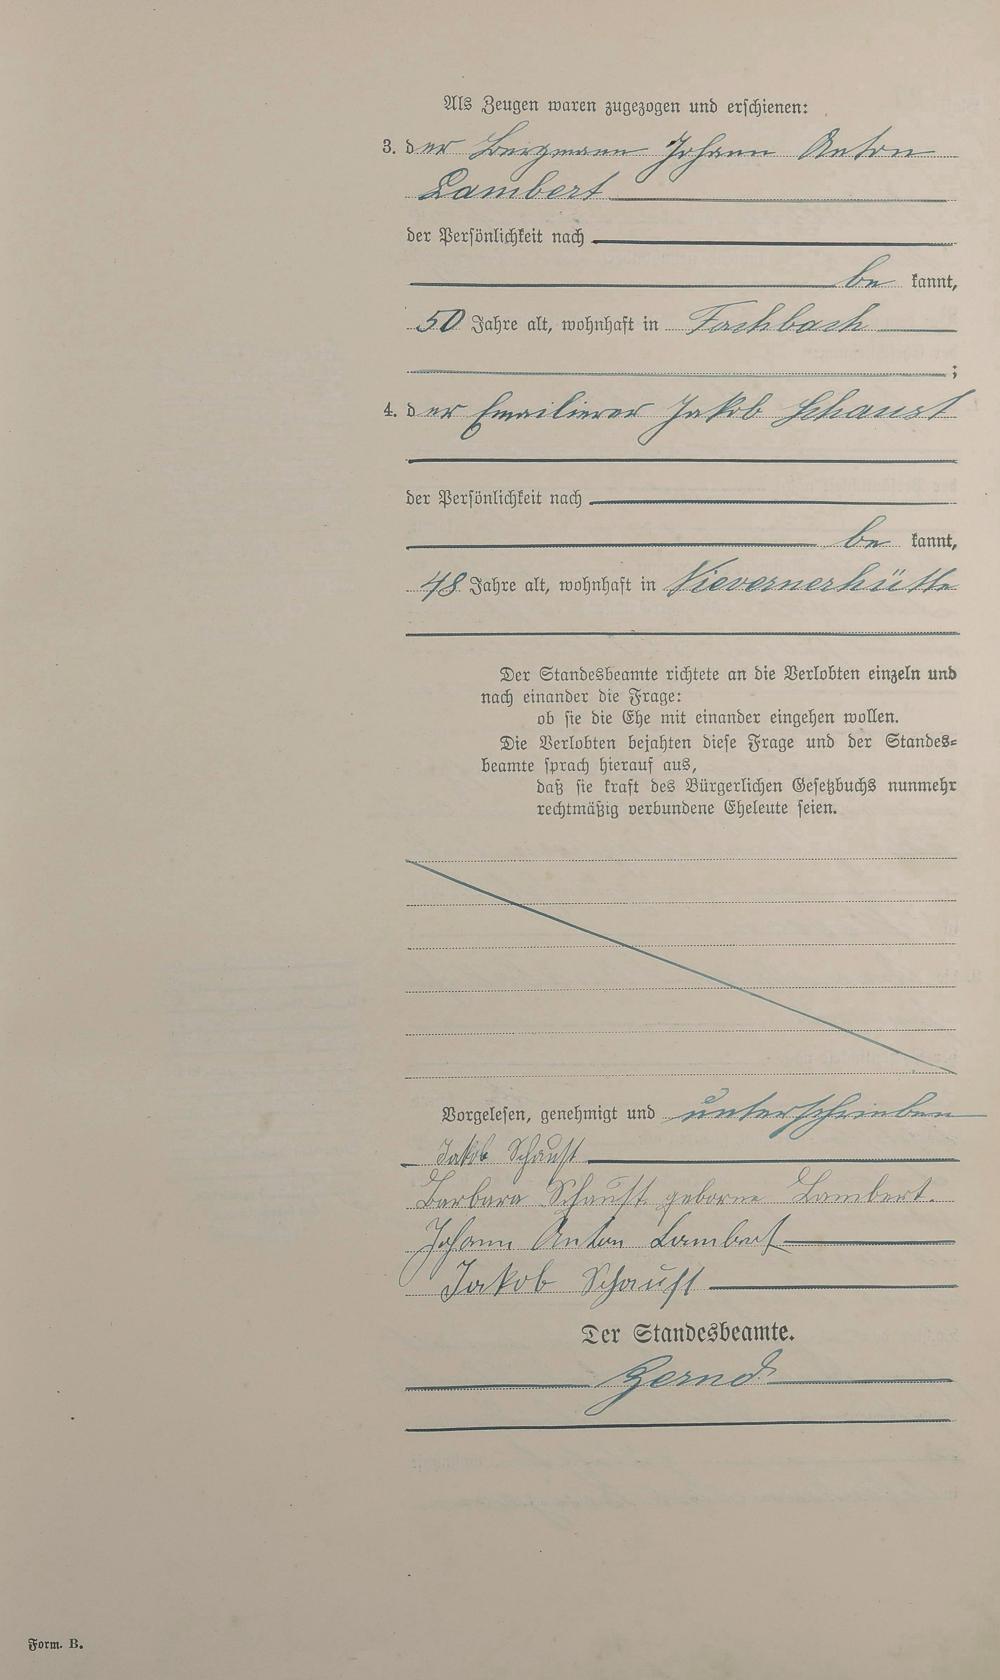 Als Zeugen waren zugezogen und erschienen:
3. der Bergmann Johann Anton
Lambert
der Persönlichkeit nach
be kannt,
50 Jahre alt, wohnhaft in Fachbach
;
4. der Emailierer Jakob Schaust
der Persönlichkeit nach
be kannt,
48 Jahre alt, wohnhaft in Nievernerhütte
Der Standesbeamte richtete an die Verlobten einzeln und
nach einander die Frage:
ob sie die Ehe mit einander eingehen wollen.
Die Verlobten bejahten diese Frage und der Standes-
beamte sprach hierauf aus,
daß sie kraft des Bürgerlichen Gesetzbuchs nunmehr
rechtmäßig verbundene Eheleute seien.
Vorgelesen, genehmigt und unterschrieben
Jakob Schaust
Barbara Schaust geborne Lambert.
Johann Anton Lambert
Jakob Schaust
Der Standesbeamte.
Form. B.